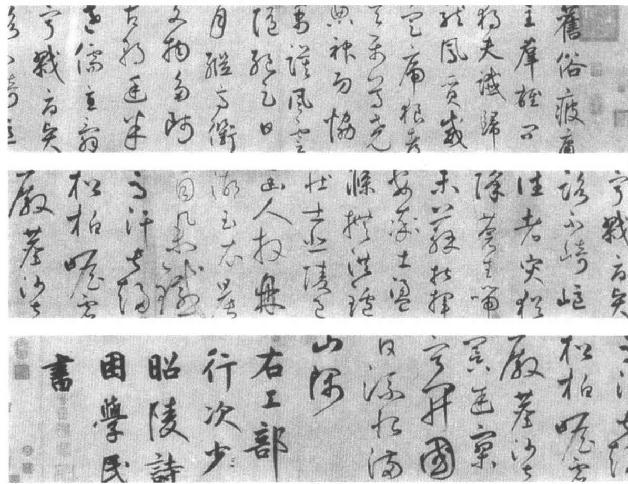 舊俗疲庸
主群雄問
獨夫讖歸
龍鳳質威
定虎狼都
天屬尊堯
典神功協
禹謨風雲
隨絕足日
月繼高衢
文物多師
古朝廷半
老儒直詞
寧戮辱賢
路不崎嶇
寧戮辱賢
路不崎嶇
往者災猶
降蒼生喘
未蘇指揮
安率土盪
滌撫洪爐
壯士悲陵邑
幽人拜鼎
湖玉衣晨
自舉鐵
馬汗常趨
松柏瞻虛
殿塵沙立
馬汗常趨
松柏瞻虛
殿塵沙立
寥開國
日流恨滿
山隅
右工部
行次少
昭陵詩
困學民
書